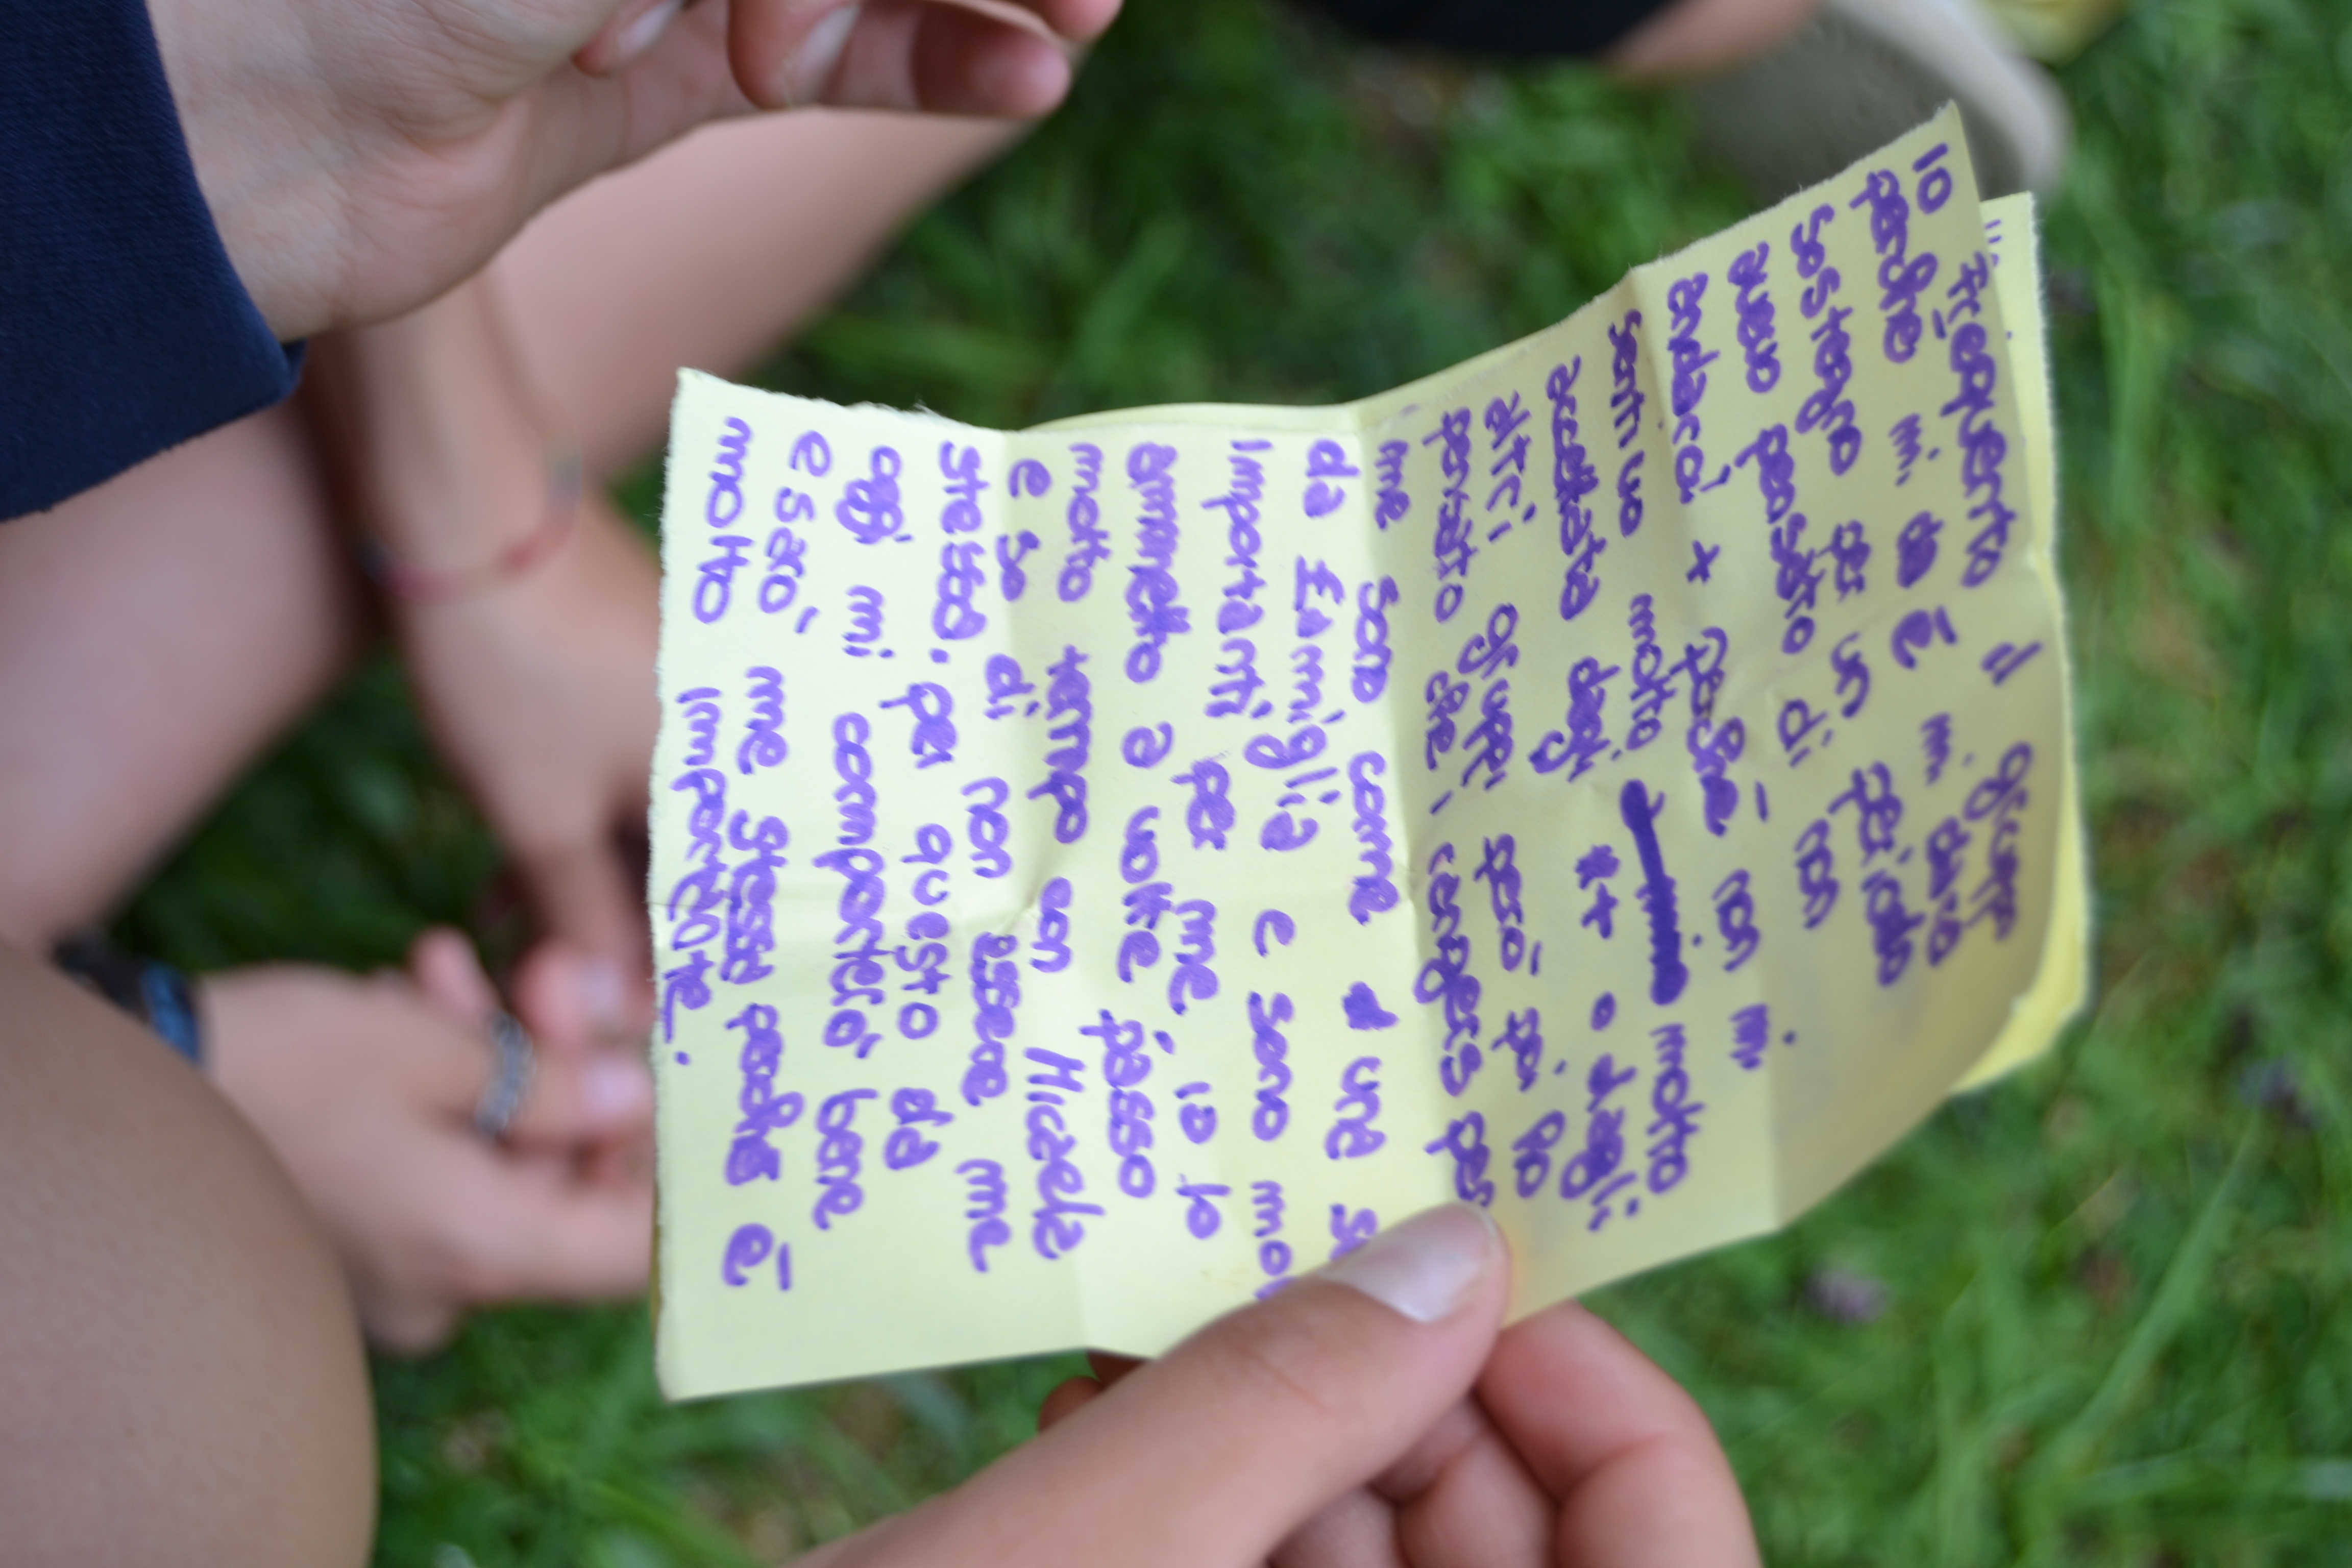 IO frequento il
perché mi
sostegno per un periodo
avevo pensato di non
andarci + perché non m
sentivo molto molto
accettata dagli o dagli
altri però poi ho
pensato che per
me sono come una
da Famiglia e sono mol
importanti per me, io lo
ammetto a volte passo
molto tempo con Micaela
e so di non essere me
stessa. per questo da
oggi mi comporterò bene
e sarò me stessa perché è
molto importante.